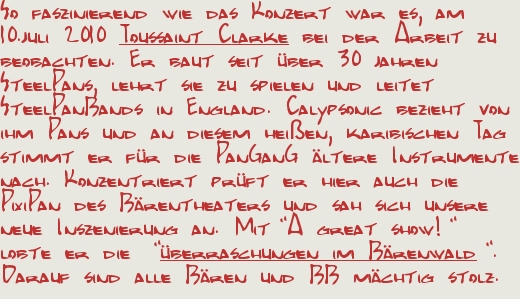 So faszinierend wie das Konzert war es, am
10.juli 2010 Toussaint Clarke bei der Arbeit zu
beobachten. Er baut seit über 30 jahren
SteelPans, lehrt sie zu spielen und leitet
SteelPanBands in England. Calypsonic bezieht von
ihm Pans und an diesem heißen, karibischen Tag
stimmt er für die PanGanG ältere Instrumente
nach. Konzentriert prüft er hier auch die
PixiPan des Bärentheaters und sah sich unsere
neue Inszenierung an. Mit "A great show! "
lobte er die "überraschungen im Bärenwald ".
Darauf sind alle Bären und BB mächtig stolz.